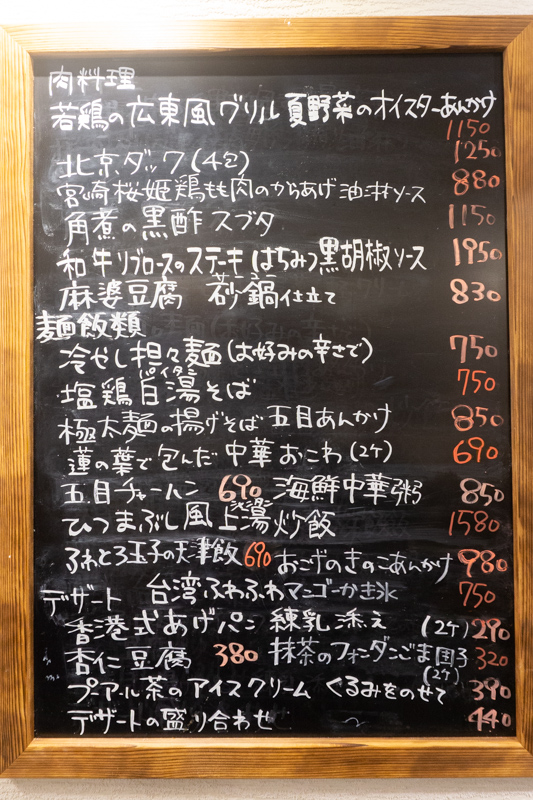 肉料理
若鶏の広東風グリル 夏野菜のオイスターあんかけ
1150
北京ダック(4包) 1250
宮崎桜姫鶏もも肉のからあげ 油淋ソース 880
角煮の黒酢スブタ 1150
和牛リブロースのステーキ はちみつ黒胡椒ソース 1950
麻婆豆腐 砂鍋仕立て 830
麺飯類
冷やし担々麺(お好みの辛さで) 750
パイタン
塩鶏白湯そば 750
極太麺の揚げそば 五目あんかけ 850
蓮の葉で包んだ 中華おこわ(2ケ) 690
五目チャーハン 690 海鮮中華粥 850
ひつまぶし風 上湯炒飯 1580
ふわとろ玉子の天津飯 690 おこげのきのこあんかけ 980
デザート 台湾ふわふわマンゴーかき氷 750
香港式あげパン 練乳添え (2ケ) 290
杏仁豆腐 380 抹茶のフォンダンごま団子 320
(2ケ)
プーアル茶のアイスクリーム くるみをのせて 390
デザートの盛り合わせ 〜 440